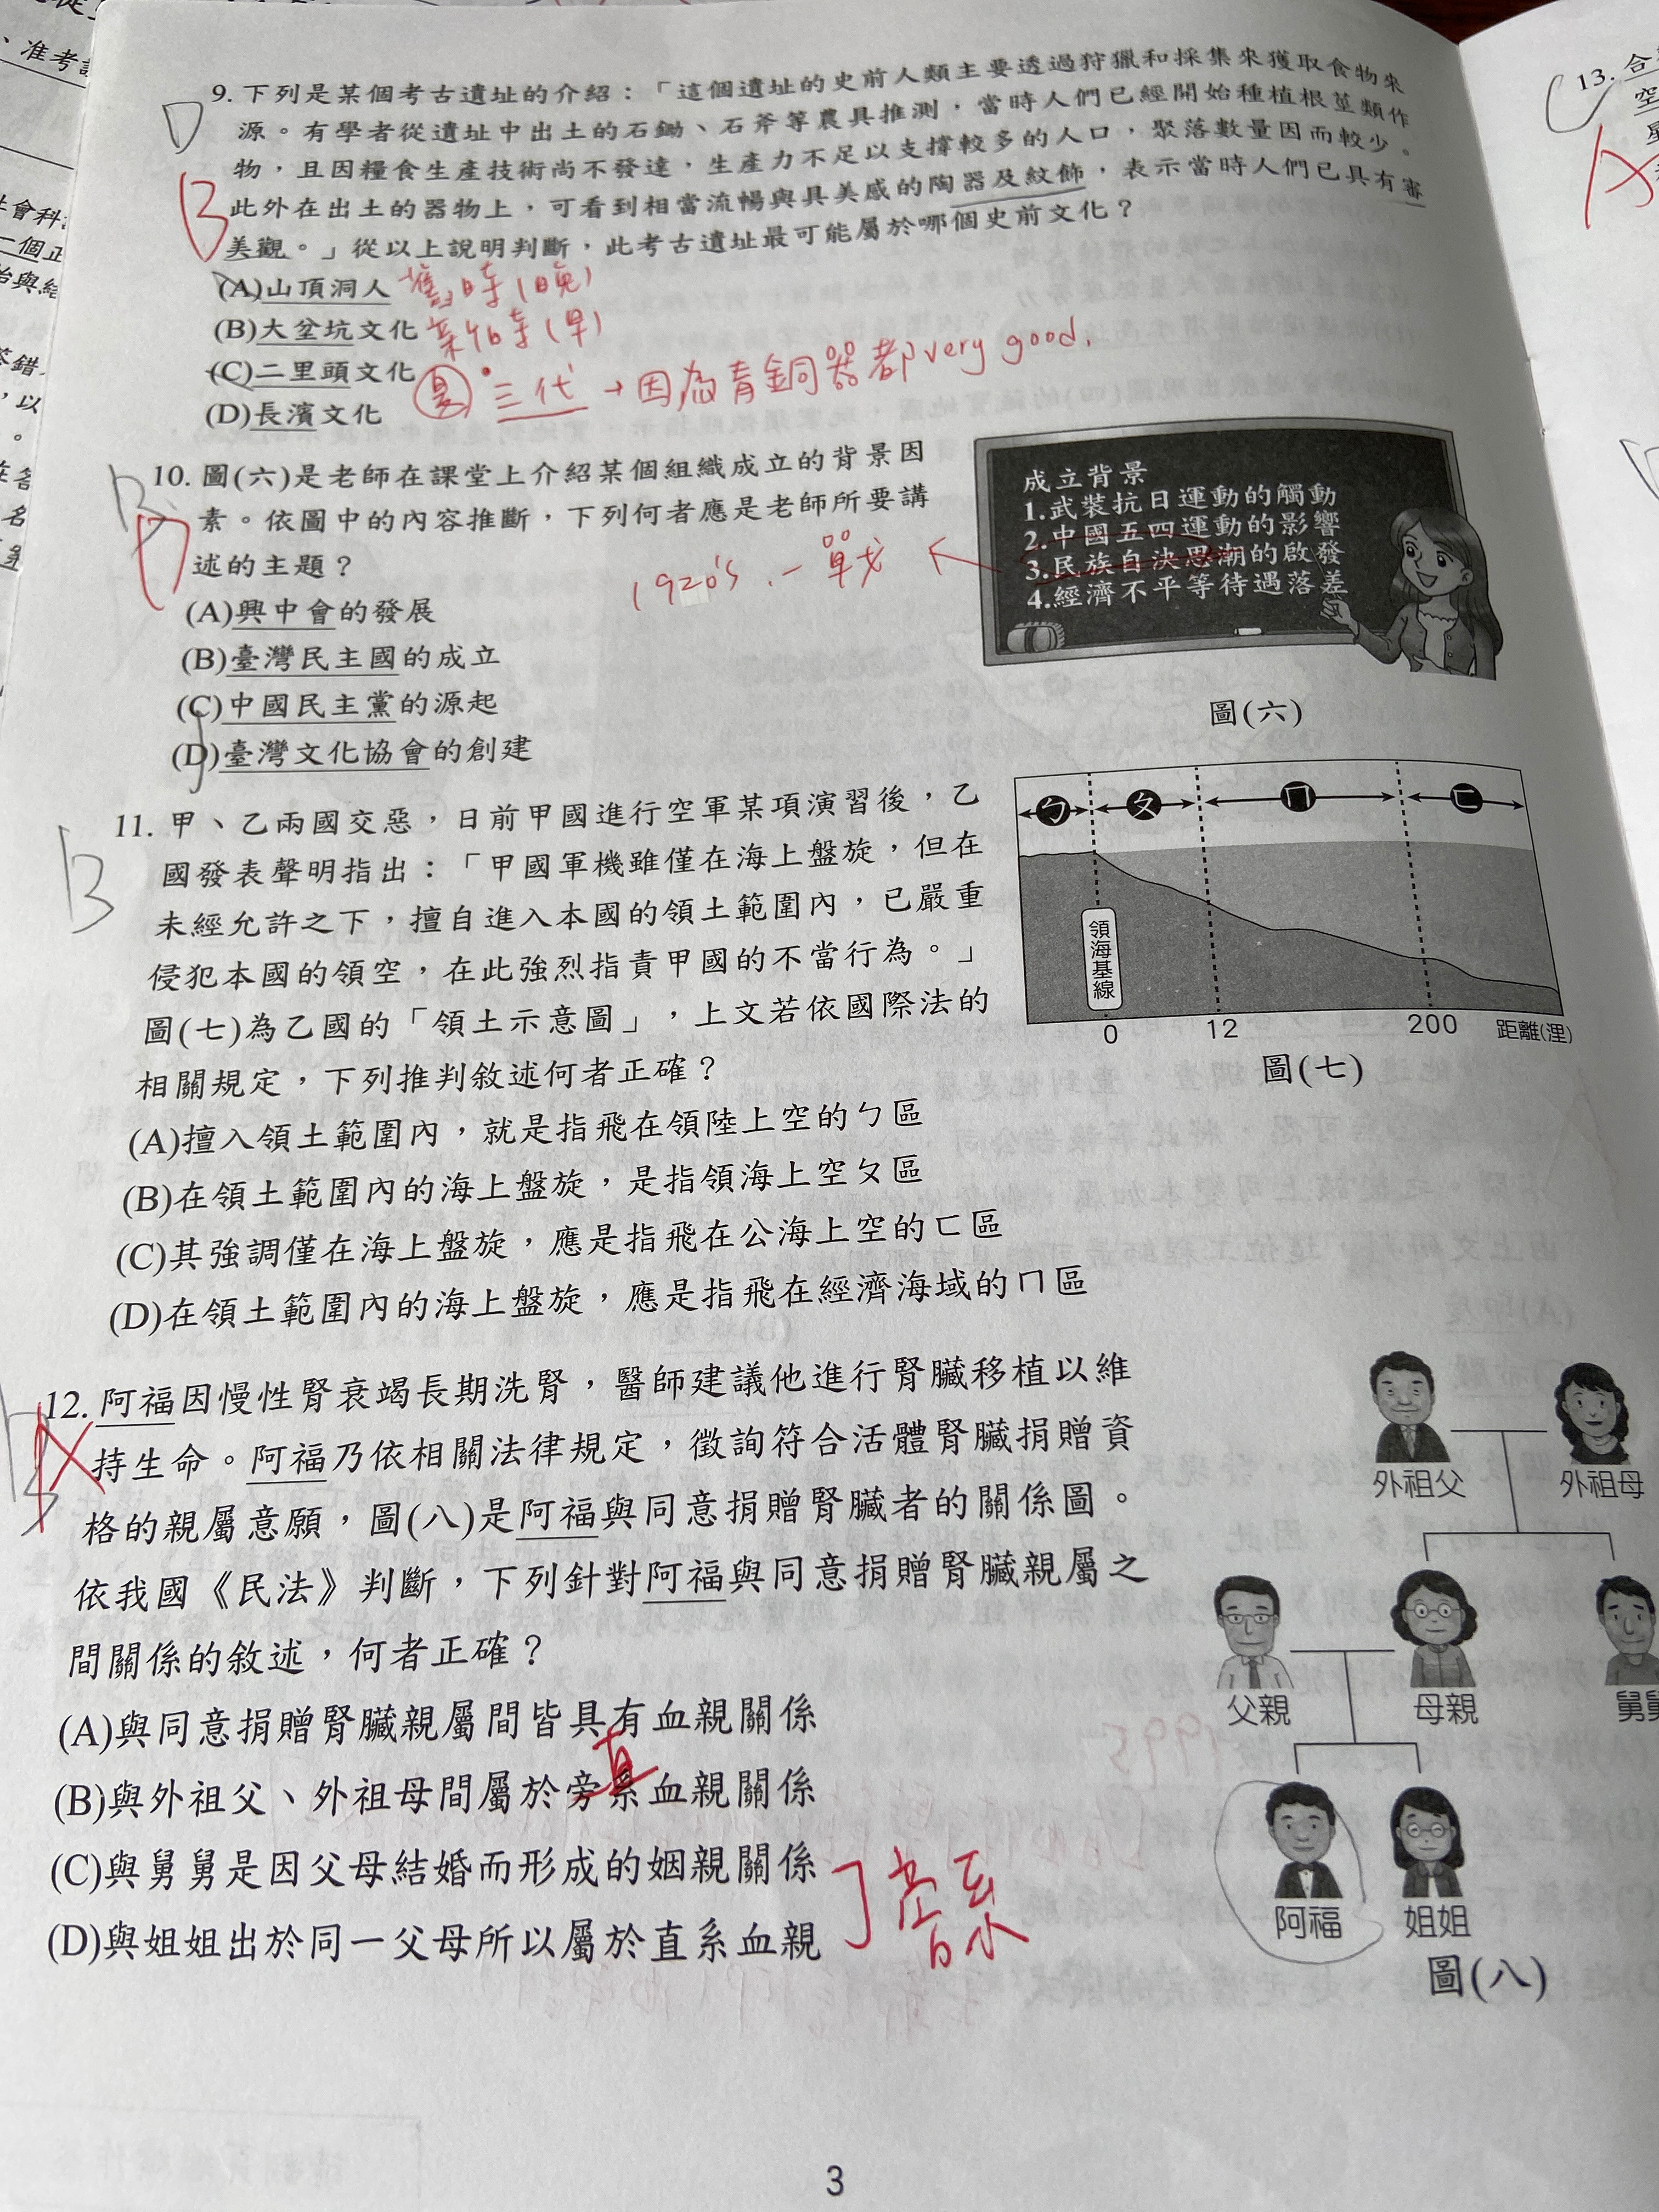 、准考
社會科
二個正
始與結
答錯
,以
。
在答
名
D
B
9. 下列是某個考古遺址的介紹：「這個遺址的史前人類主要透過狩獵和採集來獲取食物來
源。有學者從遺址中出土的石鋤、石斧等農具推測，當時人們已經開始種植根莖類作
物，且因糧食生產技術尚不發達，生產力不足以支撐較多的人口，聚落數量因而較少。
此外在出土的器物上，可看到相當流暢與具美感的陶器及紋飾，表示當時人們已具有審
美觀。」從以上說明判斷，此考古遺址最可能屬於哪個史前文化？
(A)山頂洞人 舊時(晚)
(B)大坌坑文化 新石(早)
(C)二里頭文化 夏 三代→因為青銅器都very good.
(D)長濱文化
B
D
10. 圖(六)是老師在課堂上介紹某個組織成立的背景因
素。依圖中的內容推斷，下列何者應是老師所要講
述的主題？
1920's. 一戰 ←
(A)興中會的發展
(B)臺灣民主國的成立
(C)中國民主黨的源起
(D)臺灣文化協會的創建
成立背景
1.武裝抗日運動的觸動
2.中國五四運動的影響
3.民族自決思潮的啟發
4.經濟不平等待遇落差
圖(六)
B
11. 甲、乙兩國交惡，日前甲國進行空軍某項演習後，乙
國發表聲明指出：「甲國軍機雖僅在海上盤旋，但在
未經允許之下，擅自進入本國的領土範圍內，已嚴重
侵犯本國的領空，在此強烈指責甲國的不當行為。」
圖(七)為乙國的「領土示意圖」，上文若依國際法的
相關規定，下列推判敘述何者正確？
(A)擅入領土範圍內，就是指飛在領陸上空的ㄅ區
(B)在領土範圍內的海上盤旋，是指領海上空ㄆ區
(C)其強調僅在海上盤旋，應是指飛在公海上空的ㄈ區
(D)在領土範圍內的海上盤旋，應是指飛在經濟海域的ㄇ區
ㄅ ㄆ ㄇ ㄈ
領海基線
0 12 200 距離(浬)
圖(七)
B
A
12. 阿福因慢性腎衰竭長期洗腎，醫師建議他進行腎臟移植以維
持生命。阿福乃依相關法律規定，徵詢符合活體腎臟捐贈資
格的親屬意願，圖(八)是阿福與同意捐贈腎臟者的關係圖。
依我國《民法》判斷，下列針對阿福與同意捐贈腎臟親屬之
間關係的敘述，何者正確？
(A)與同意捐贈腎臟親屬間皆具有血親關係
直
(B)與外祖父、外祖母間屬於旁系血親關係
(C)與舅舅是因父母結婚而形成的姻親關係
(D)與姐姐出於同一父母所以屬於直系血親
外祖父 外祖母
父親 母親 舅舅
阿福 姐姐
圖(八)
3
C
A
13. 合
空